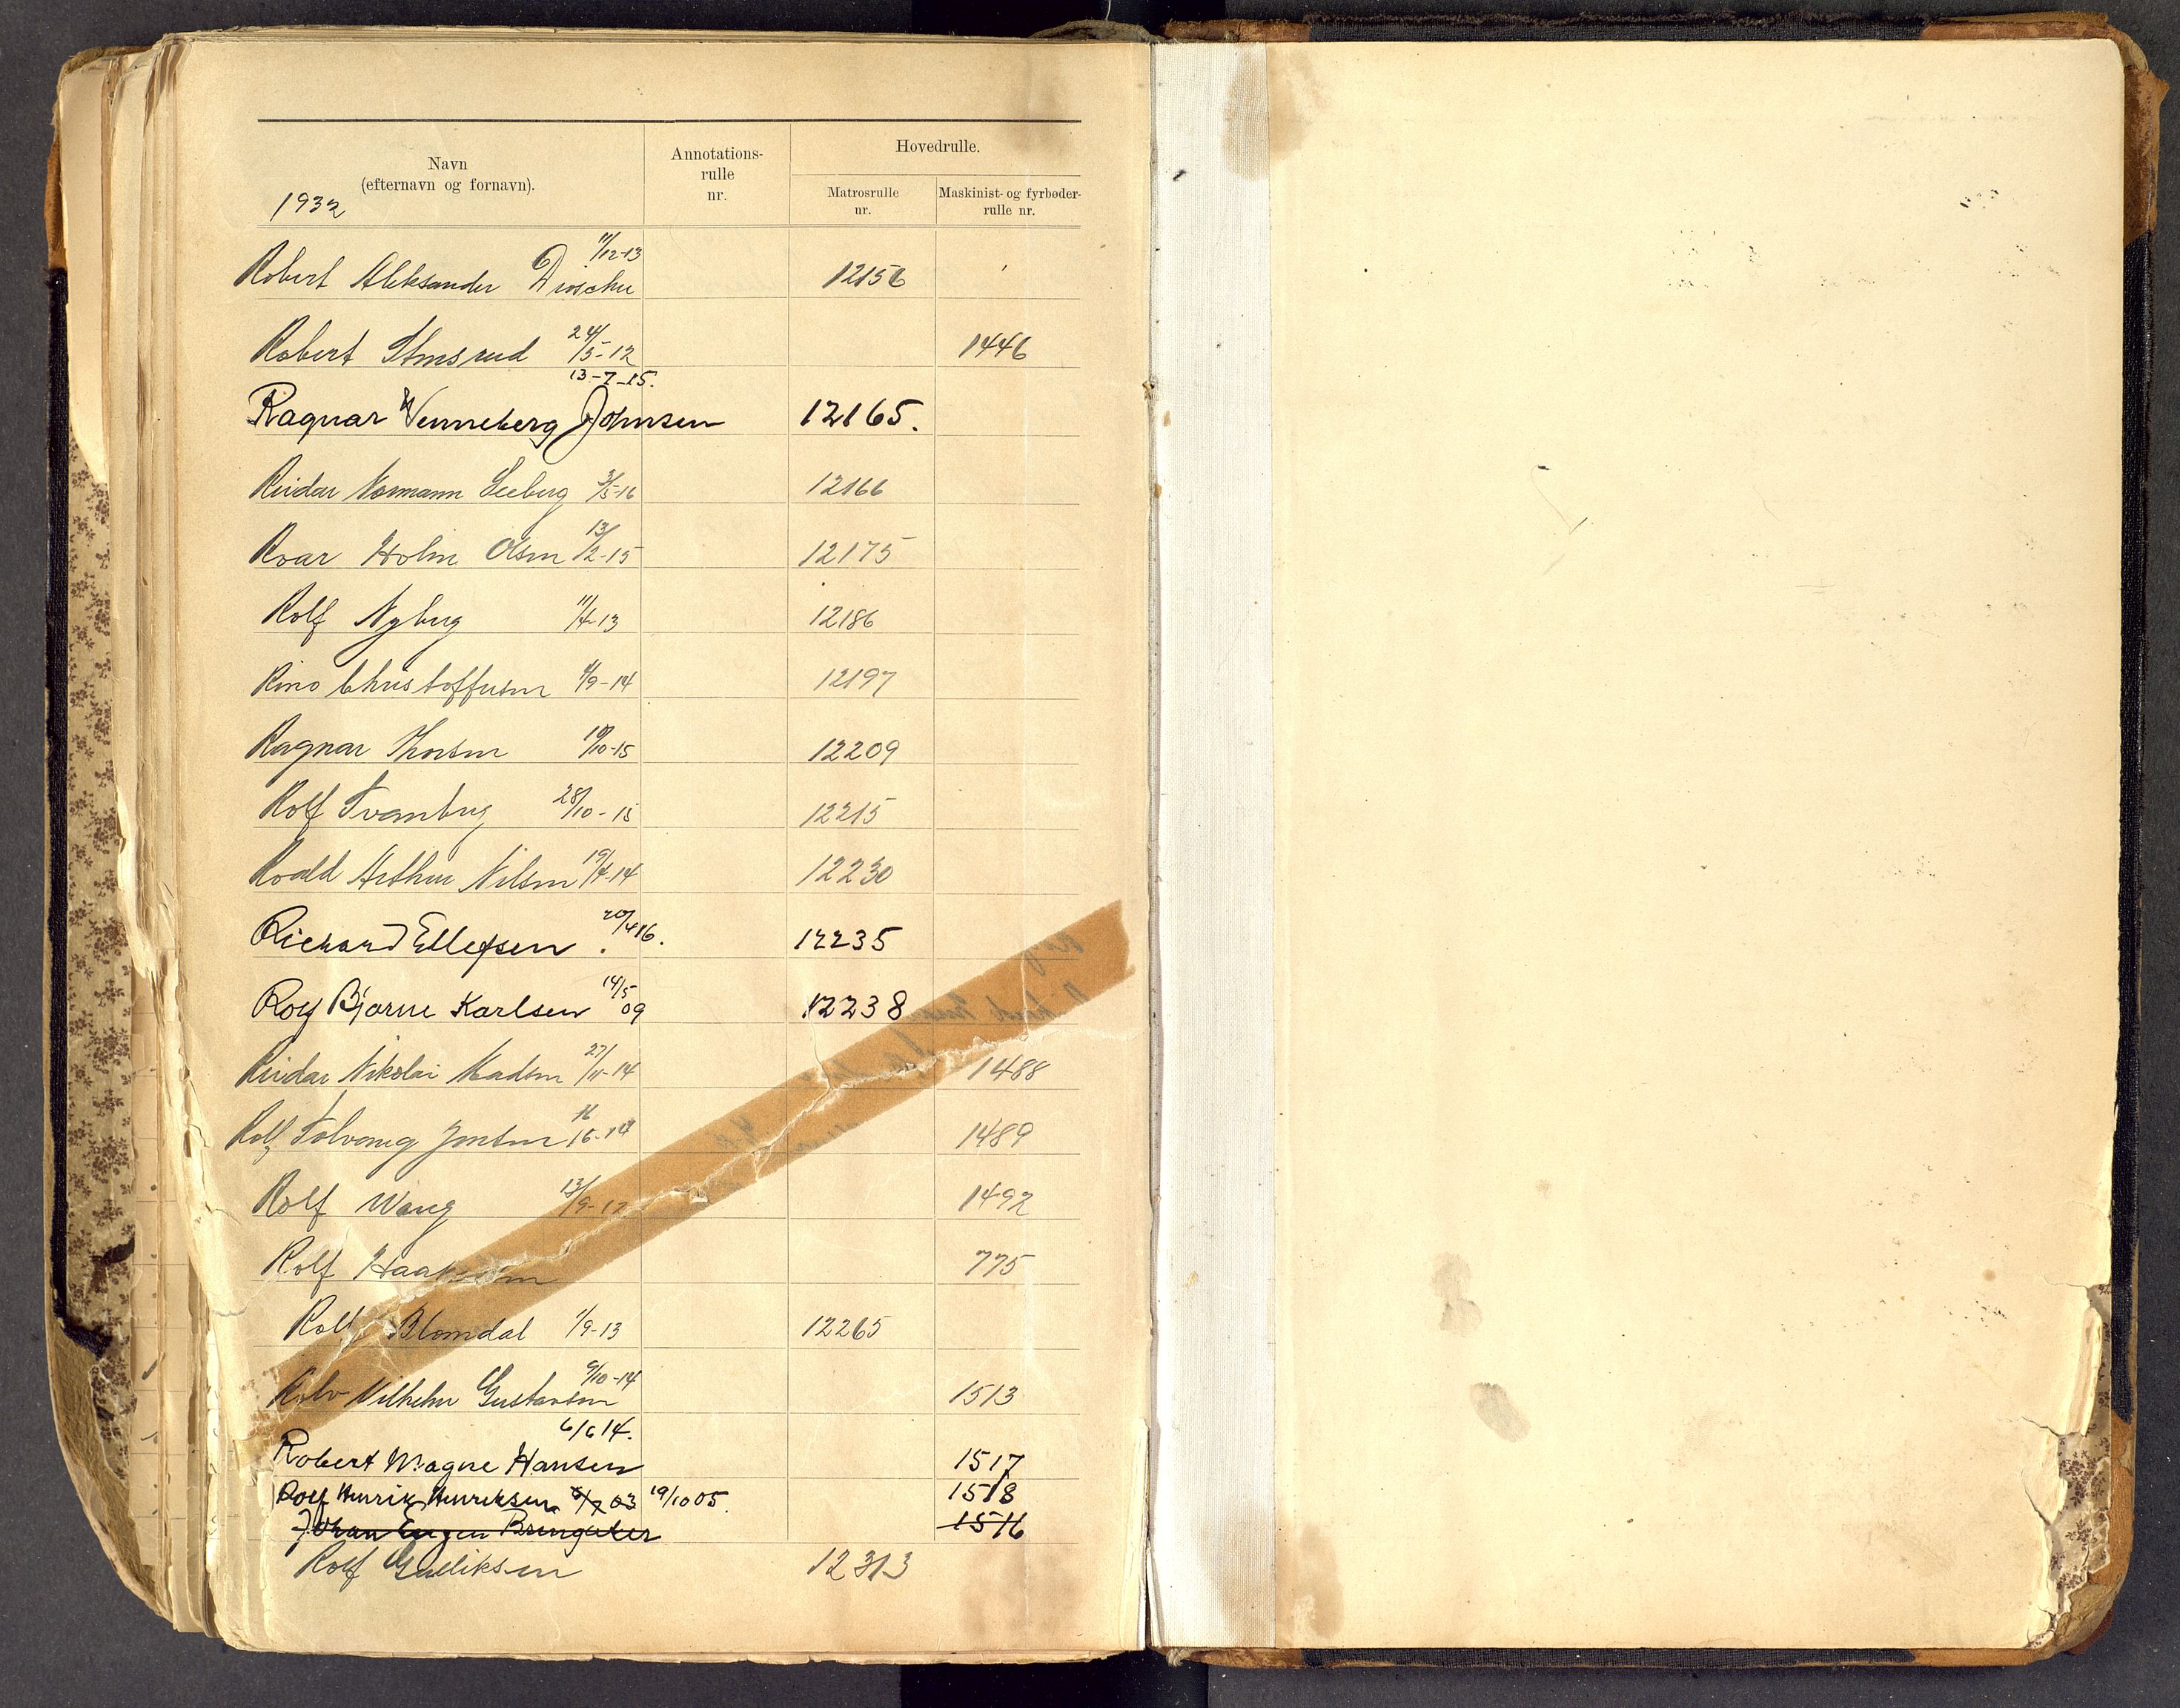 Navn
(efternavn og fornavn).
1932
Annotations-
rulle
nr.
Hovedrulle.
Matrosrulle
nr.
Maskinist- og fyrbøder-
rulle nr.
11/12-13
Robert Aleksander 12156
Robert 24/5-12 1446
13-7-15.
Ragnar Wenneberg Johnsen 12165.
Reidar Normann Seeberg 3/5-16 12166
Roar Holm Olsen 13/2-15 12175
Rolf Nyberg 11/4-13 12186
Rino Christoffersen 4/9-14 12197
Ragnar Thorsen 10-15 12209
Rolf Svanberg 28/10-15 12215
Roald Arthur Nilsen 19/4-14 12230
Richard Ellefsen 20/4 16. 12235
Rolf Bjarne Karlsen 14/5 09 12238
Reidar Nikolai Madsen 27/11-14 1488
Rolf Solvang Jensen 16-14 1489
Rolf Wang 13/9-12 1492
Rolf Haakonsen 775
Rolf Blomdal 1/9-13 12265
9/10-14
Rolv Vilhelm Gustavsen 1513
6/6 14.
Robert Magne Hansen 1517
Rolf Henrik Henriksen 03 19/10 05. 1518
Johan Eugen Bringaker 1516
Rolf Gulliksen 12313